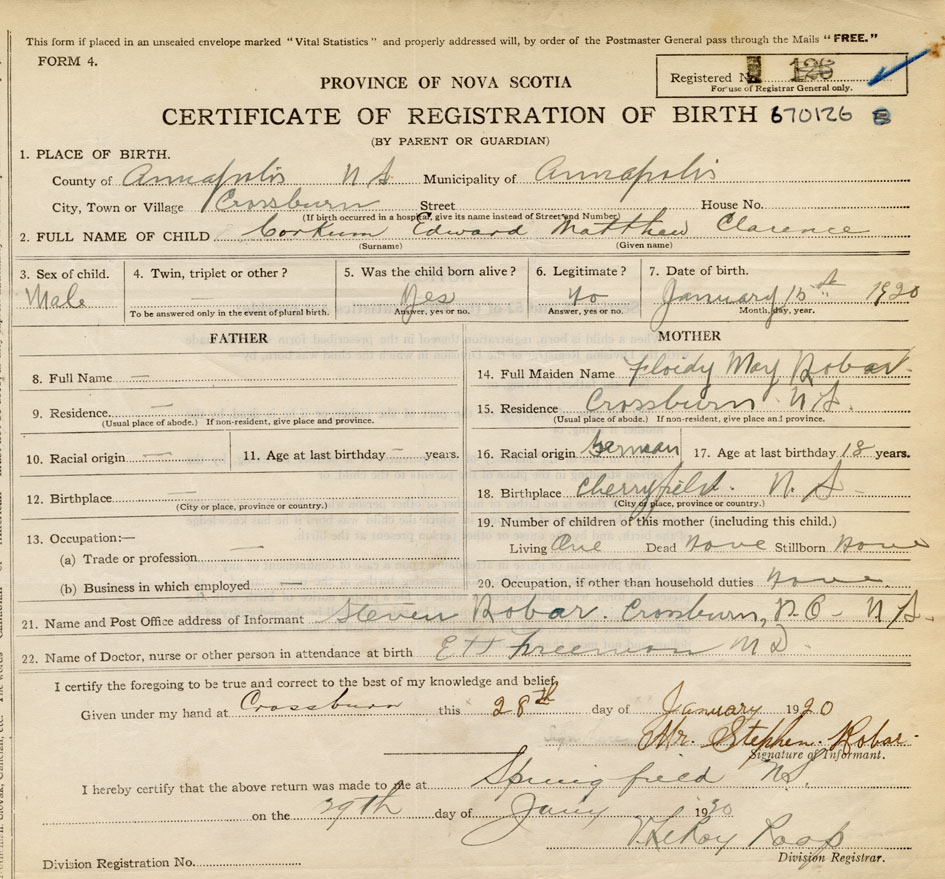 This form if placed in an unsealed envelope marked "Vital Statistics" and properly addressed will, by order of the Postmaster General pass through the Mails "FREE."
FORM 4.
Registered No. 126
For use of Registrar General only.
PROVINCE OF NOVA SCOTIA
CERTIFICATE OF REGISTRATION OF BIRTH 670126
(BY PARENT OR GUARDIAN)
1. PLACE OF BIRTH.
County of Annapolis N S Municipality of Annapolis
City, Town or Village Crossburn Street House No.
(If birth occurred in a hospital, give its name instead of Street and Number)
2. FULL NAME OF CHILD Corkum Edward Matthew Clarence
(Surname) (Given name)
3. Sex of child. 4. Twin, triplet or other? 5. Was the child born alive? 6. Legitimate? 7. Date of birth.
Male — Yes no January 15th 1920
To be answered only in the event of plural birth. Answer, yes or no. Answer, yes or no. Month, day, year.
FATHER
8. Full Name —
9. Residence. —
(Usual place of abode.) If non-resident, give place and province.
10. Racial origin — 11. Age at last birthday — years.
12. Birthplace —
(City or place, province or country.)
13. Occupation:—
(a) Trade or profession —
(b) Business in which employed —
MOTHER
14. Full Maiden Name Floidy May Robar
15. Residence Crossburn N.S.
(Usual place of abode.) If non-resident, give place and province.
16. Racial origin German 17. Age at last birthday 18 years.
18. Birthplace Cherryfield. N. S
(City or place, province or country.)
19. Number of children of this mother (including this child.)
Living One Dead None Stillborn None
20. Occupation, if other than household duties None
21. Name and Post Office address of Informant Steven Robar. Crossburn, P.O - N S.
22. Name of Doctor, nurse or other person in attendance at birth Freeman M D.
I certify the foregoing to be true and correct to the best of my knowledge and belief,
Given under my hand at Crossburn this 28th day of January 1920
Mr. Stephen. Robar.
Signature of Informant.
I hereby certify that the above return was made to me at Springfield NS
on the 29th day of Jany 1920
Roop
Division Registrar.
Division Registration No.